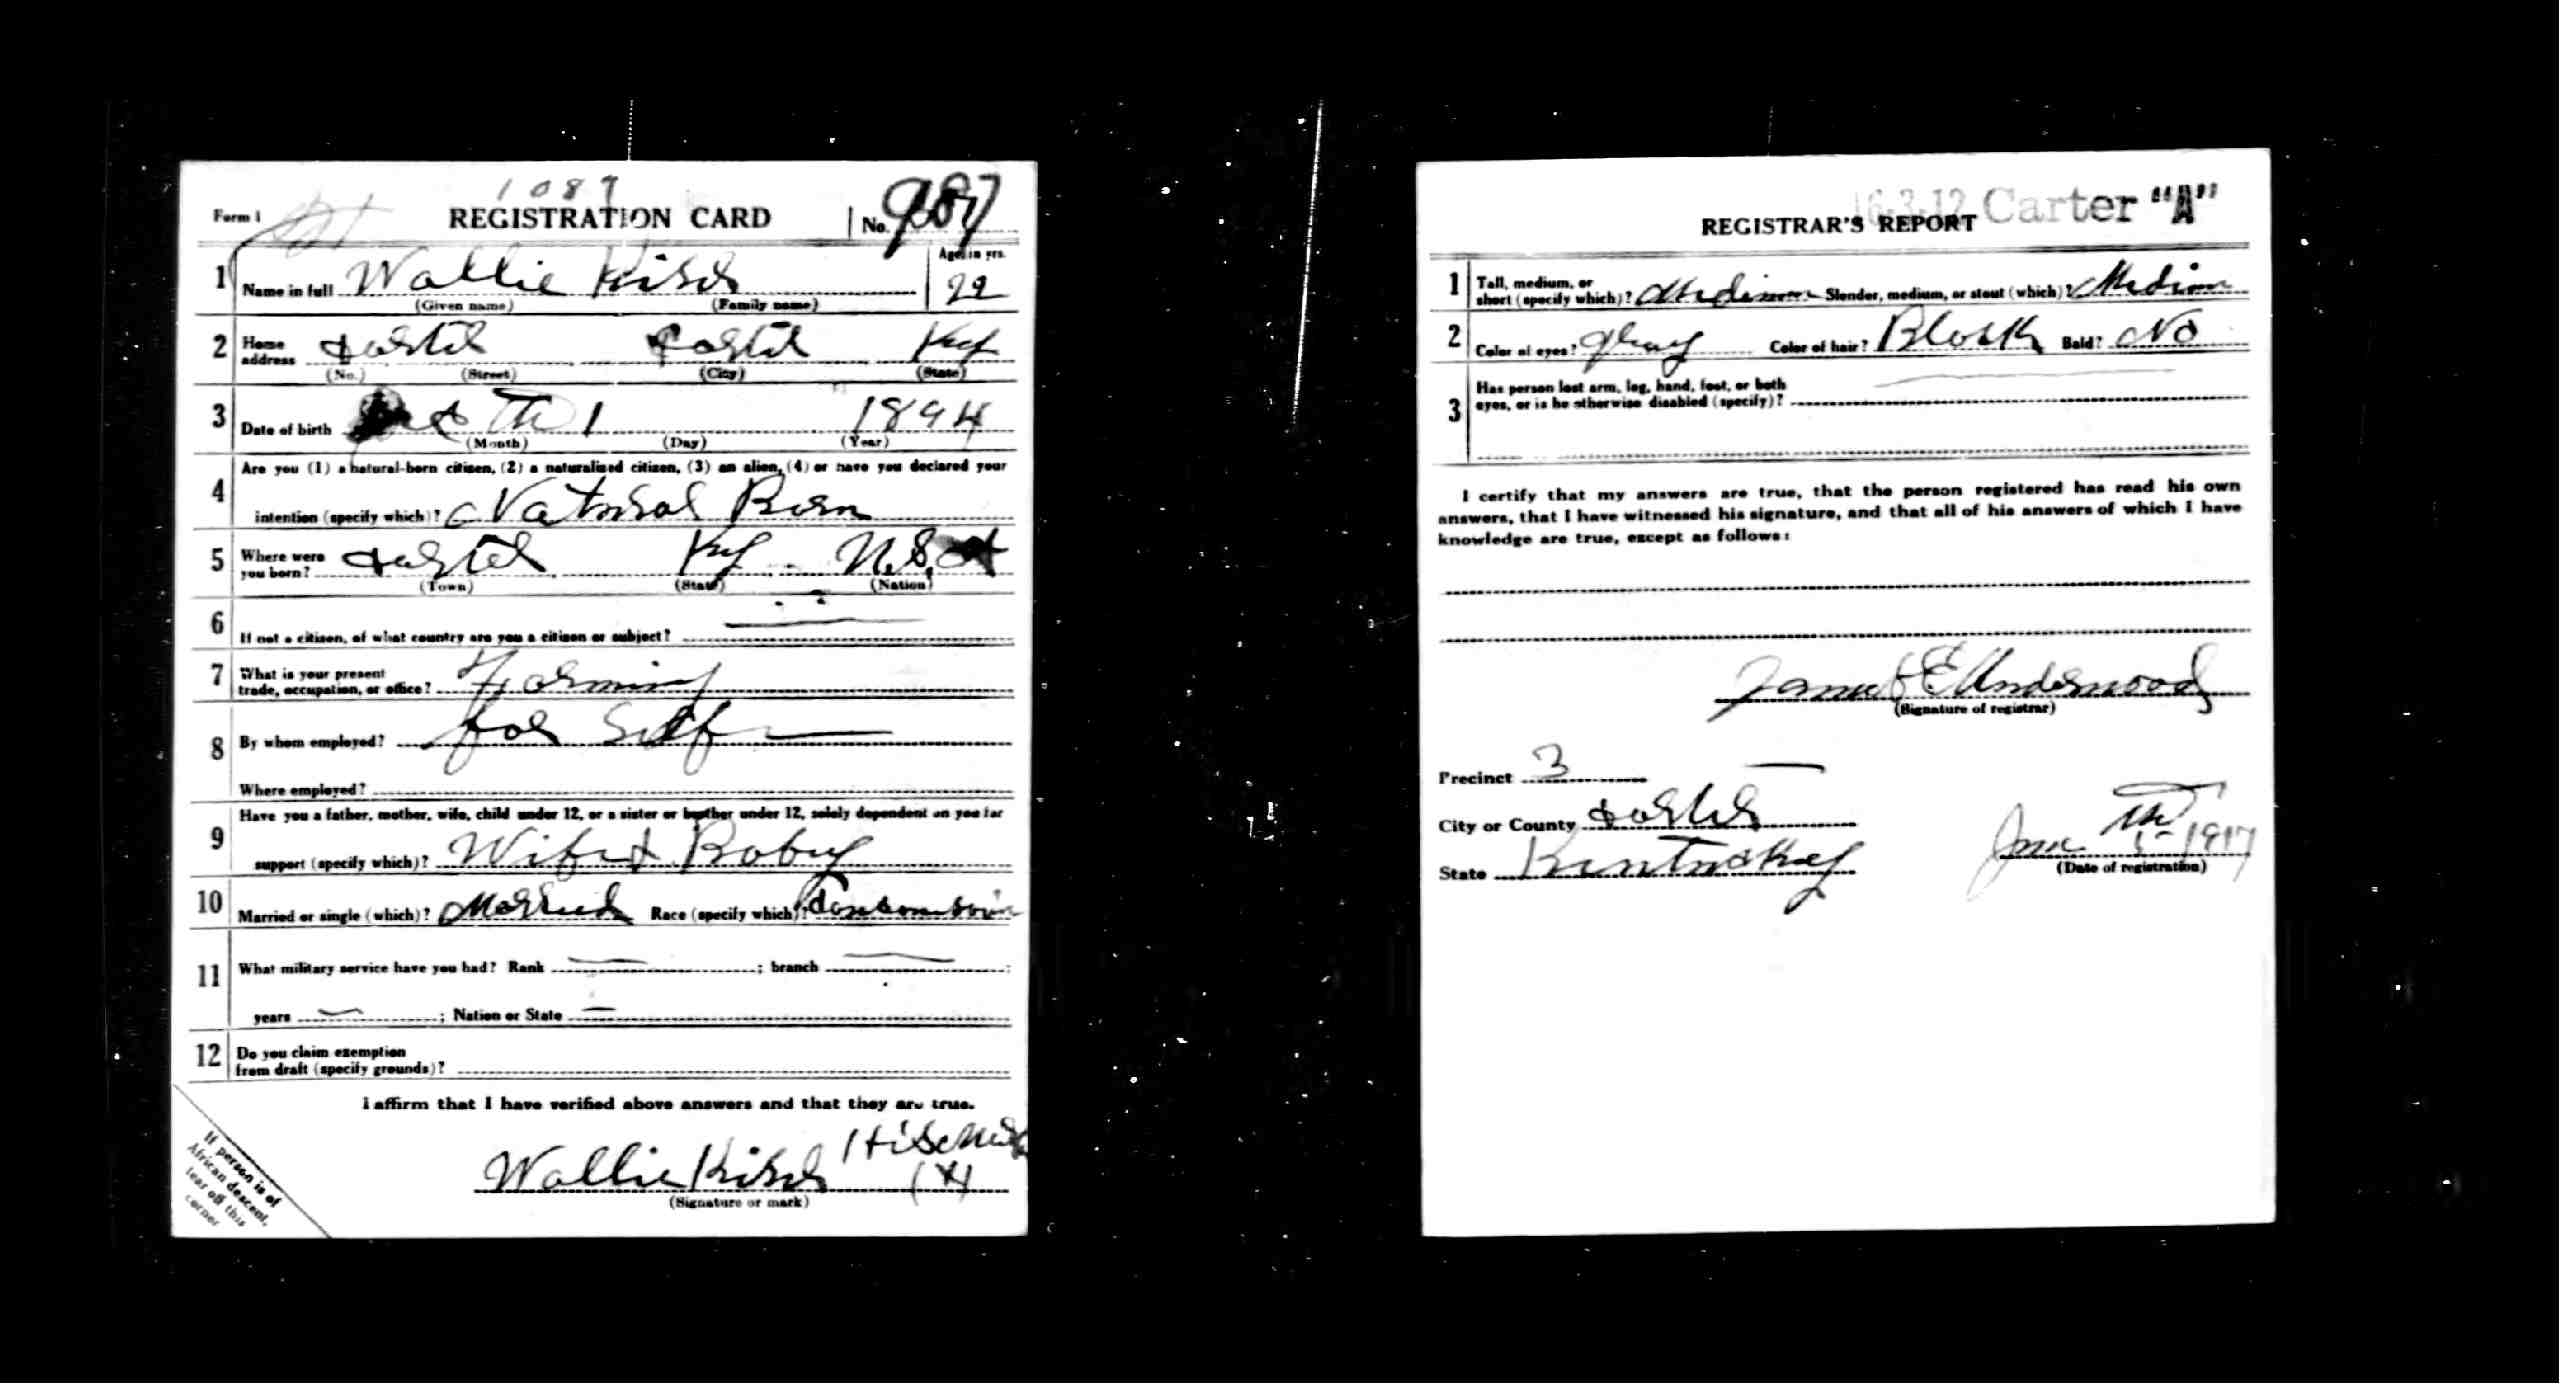 1087
Form 1 REGISTRATION CARD No. 987
Age, in yrs.
1 Name in full Wallie 22
(Given name) (Family name)
2 Home address Ky
(No.) (Street) (City) (State)
3 Date of birth 1 1894
(Month) (Day) (Year)
4 Are you (1) a natural-born citizen, (2) a naturalized citizen, (3) an alien, (4) or have you declared your
intention (specify which)? Natural Born
5 Where were you born? Ky
(Town) (State) (Nation)
6 If not a citizen, of what country are you a citizen or subject?
7 What is your present
trade, occupation, or office? Farming
8 By whom employed? for Self
Where employed?
9 Have you a father, mother, wife, child under 12, or a sister or brother under 12, solely dependent on you for
support (specify which)? Wife & Baby
10 Married or single (which)? Married Race (specify which)?
11 What military service have you had? Rank ; branch ;
years ; Nation or State
12 Do you claim exemption
from draft (specify grounds)?
I affirm that I have verified above answers and that they are true.
His
Wallie (X)
(Signature or mark)
If person is of
African descent,
tear off this
corner
16-3-12 Carter "A"
REGISTRAR'S REPORT
1 Tall, medium, or
short (specify which)? Medium Slender, medium, or stout (which)? Medium
2 Color of eyes? Color of hair? Black Bald? No
3 Has person lost arm, leg, hand, foot, or both
eyes, or is he otherwise disabled (specify)?
I certify that my answers are true, that the person registered has read his own
answers, that I have witnessed his signature, and that all of his answers of which I have
knowledge are true, except as follows:
E Underwood
(Signature of registrar)
Precinct 3
City or County
State Kentucky
June 5th 1917
(Date of registration)